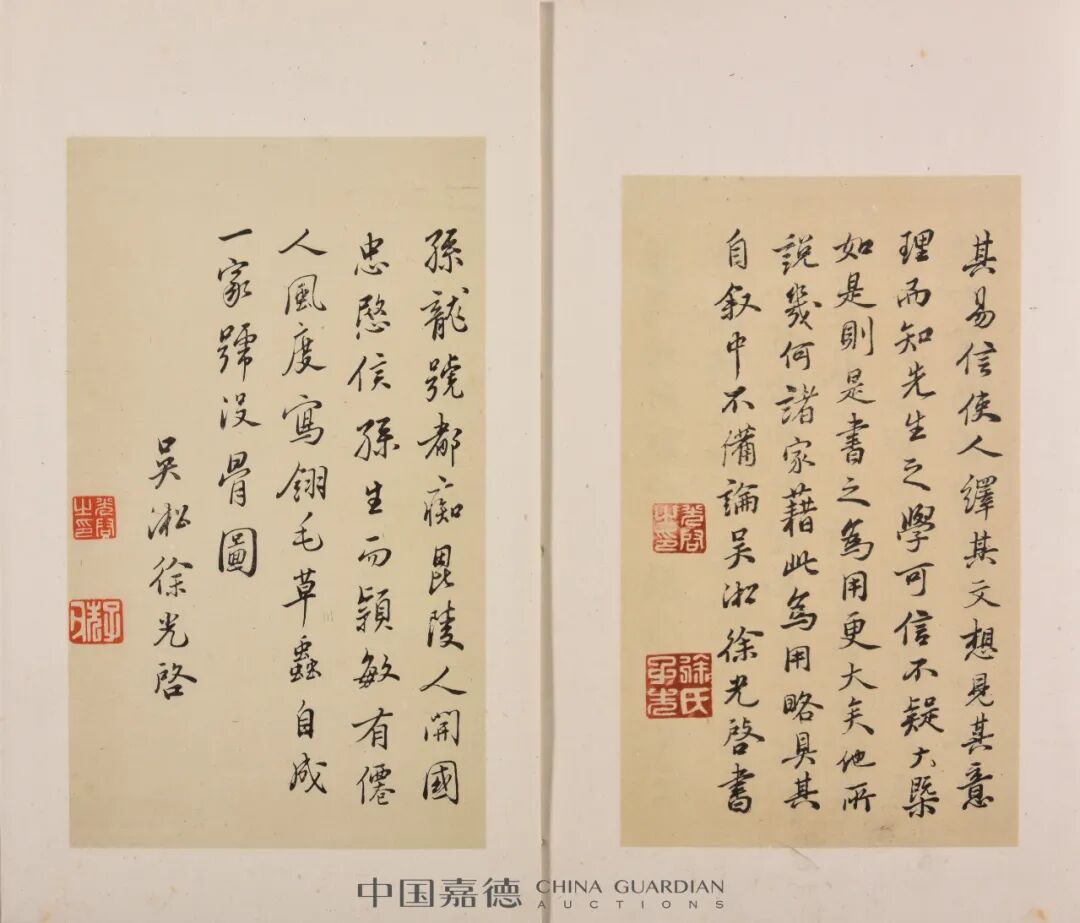 其易信使人繹其文想見其意
理而知先生之學可信不疑大槩
如是則是書之為用更大矣他所
說幾何諸家藉此為用略具其
自叙中不備論吴淞徐光啓書
光啓之印
徐氏子先
孫龍號都痴毘陵人開國
忠愍侯孫生而穎敏有僊
人風度寫翎毛草蟲自成
一家號没骨圖
吴淞徐光啓
光啓之印
中国嘉德 CHINA GUARDIAN
AUCTIONS